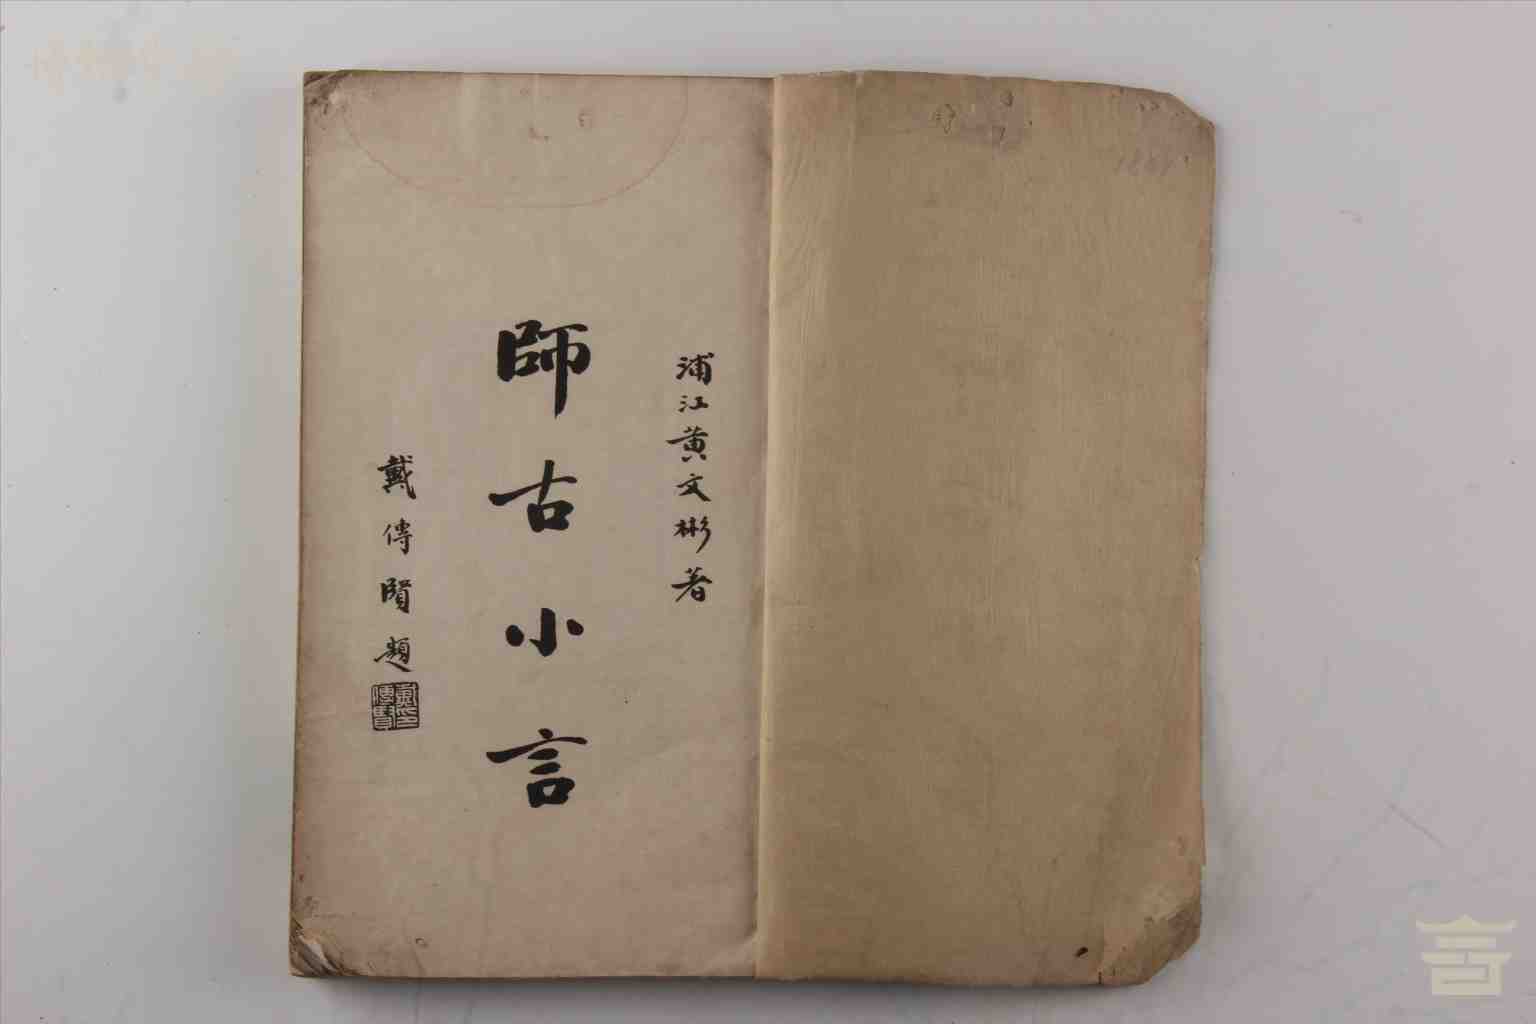 浦江黄文彬著
師古小言
戴傳賢題
戴印
傳賢